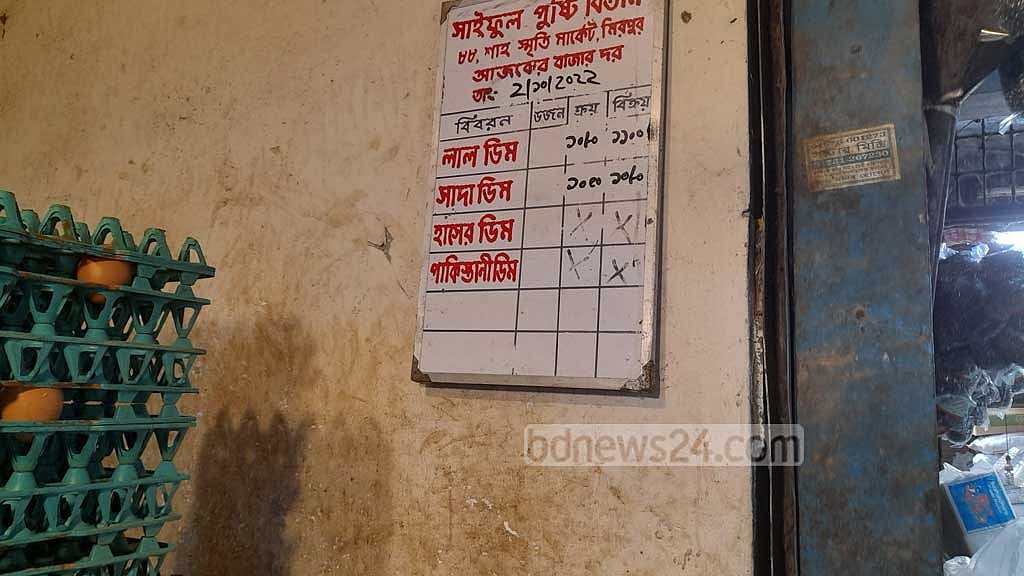 সাইফুল পুষ্টি বিতান
৮৮, শাহ্ স্মৃতি মার্কেট, মিরপুর
আজকের বাজার দর
তাং- 2/১০/2022
বিবরন ওজন ক্রয় বিক্রয়
লাল ডিম ১০৮০ ১১০০
সাদা ডিম ১০৫০ ১০৮০
হাসের ডিম X X
পাকিস্তানী ডিম X X
bdnews24.com